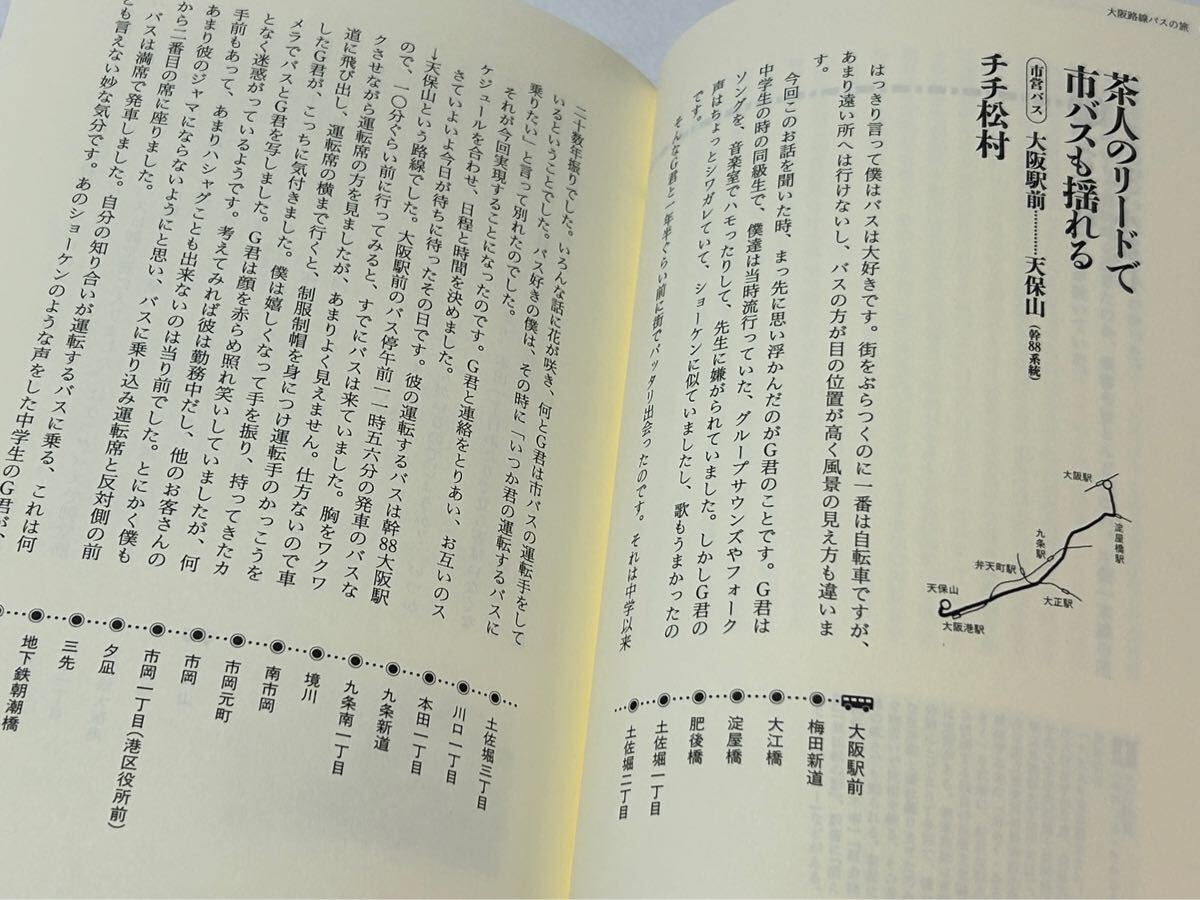 大阪路線バスの旅
茶人のリードで
市バスも揺れる
市営バス 大阪駅前…………天保山(幹88系統)
チチ松村
大阪駅
淀屋橋駅
九条駅
弁天町駅
大正駅
天保山
大阪港駅
はっきり言って僕はバスは大好きです。街をぶらつくのに一番は自転車ですが、
あまり遠い所へは行けないし、バスの方が目の位置が高く風景の見え方も違いま
す。
今回このお話を聞いた時、まっ先に思い浮かんだのがG君のことです。G君は
中学生の時の同級生で、僕達は当時流行っていた、グループサウンズやフォーク
ソングを、音楽室でハモったりして、先生に嫌がられていました。しかしG君の
声はちょっとシワガレていて、ショーケンに似ていましたし、歌もうまかったの
です。
そんなG君と一年半ぐらい前に街でバッタリ出会ったのです。それは中学以来
大阪駅前
梅田新道
大江橋
淀屋橋
肥後橋
土佐堀一丁目
土佐堀二丁目
二十数年振りでした。いろんな話に花が咲き、何とG君は市バスの運転手をして
いるということでした。バス好きの僕は、その時に「いつか君の運転するバスに
乗りたい」と言って別れたのでした。
それが今回実現することになったのです。G君と連絡をとりあい、お互いのス
ケジュールを合わせ、日程と時間を決めました。
さていよいよ今日が待ちに待ったその日です。彼の運転するバスは幹88大阪駅
→天保山という路線でした。大阪駅前のバス停午前一一時五六分の発車のバスな
ので、一〇分ぐらい前に行ってみると、すでにバスは来ていました。胸をワクワ
クさせながら運転席の方を見ましたが、あまりよく見えません。仕方ないので車
道に飛び出し、運転席の横まで行くと、制服制帽を身につけ運転手のかっこうを
したG君が、こっちに気付きました。僕は嬉しくなって手を振り、持ってきたカ
メラでバスとG君を写しました。G君は顔を赤らめ照れ笑いしていましたが、何
となく迷惑がっているようです。考えてみれば彼は勤務中だし、他のお客さんの
手前もあって、あまりハシャグことも出来ないのは当り前でした。とにかく僕も
あまり彼のジャマにならないようにと思い、バスに乗り込み運転席と反対側の前
から二番目の席に座りました。
バスは満席で発車しました。自分の知り合いが運転するバスに乗る、これは何
とも言えない妙な気分です。あのショーケンのような声をした中学生のG君が、
土佐堀三丁目
川口一丁目
本田一丁目
九条新道
九条南一丁目
境川
南市岡
市岡元町
市岡
市岡一丁目(港区役所前)
夕凪
三先
地下鉄朝潮橋